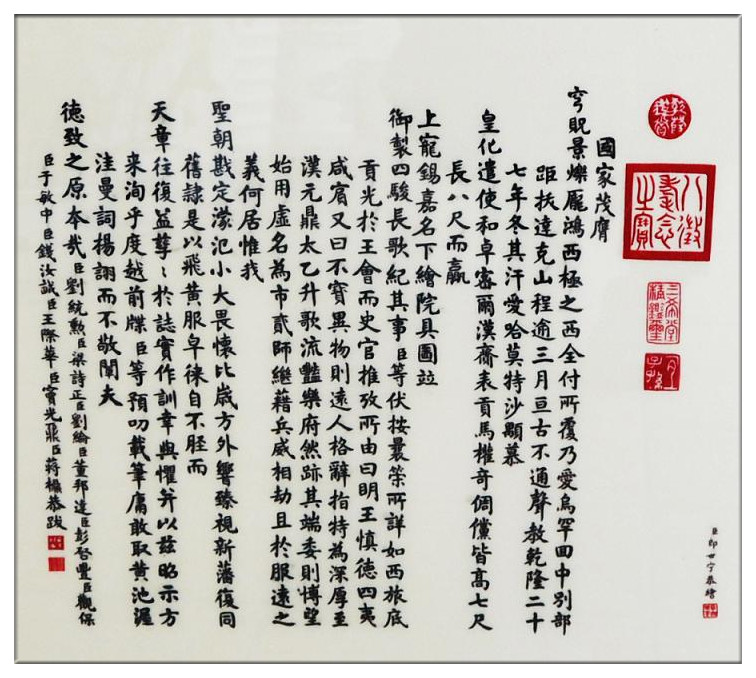 八徵耄念之寶
三希堂精鑑璽
宜子孫
臣郎世宁恭繪
國家茂膺
穹貺景爍厖鴻西極之西全付所覆乃愛烏罕回中別部
距扶達克山程逾三月亘古不通聲教乾隆二十
七年冬其汗愛哈莫特沙顯慕
皇化遣使和卓密爾漢齎表貢馬權奇倜儻皆高七尺
長八尺而贏
上寵錫嘉名下繪院具圖竝
御製四駿長歌紀其事臣等伏按曩策所詳如西旅底
貢光於王會而史官推攷所由曰明王慎德四夷
咸賓又曰不寶異物則遠人格辭指特為深厚至
漢元鼎太乙升歌流豔樂府然跡其端委則愽望
始用虛名為市貳師繼藉兵威相劫且於服遠之
義何居惟我
聖朝戡定濛汜小大畏懷比歲方外響臻視新藩復同
舊隸是以飛黃服皁徠自不脛而
天章往復益孳〻於誌實作訓韋與懼并以茲昭示方
來洵乎度越前牒臣等預叨載筆庸敢取黃池渥
洼曼詞揚詡而不敬闡夫
德致之原本哉臣劉統勲臣梁詩正臣劉綸臣董邦達臣彭啓豐臣觀保
臣于敏中臣錢汝誠臣王際華臣竇光鼐臣蔣檙恭跋